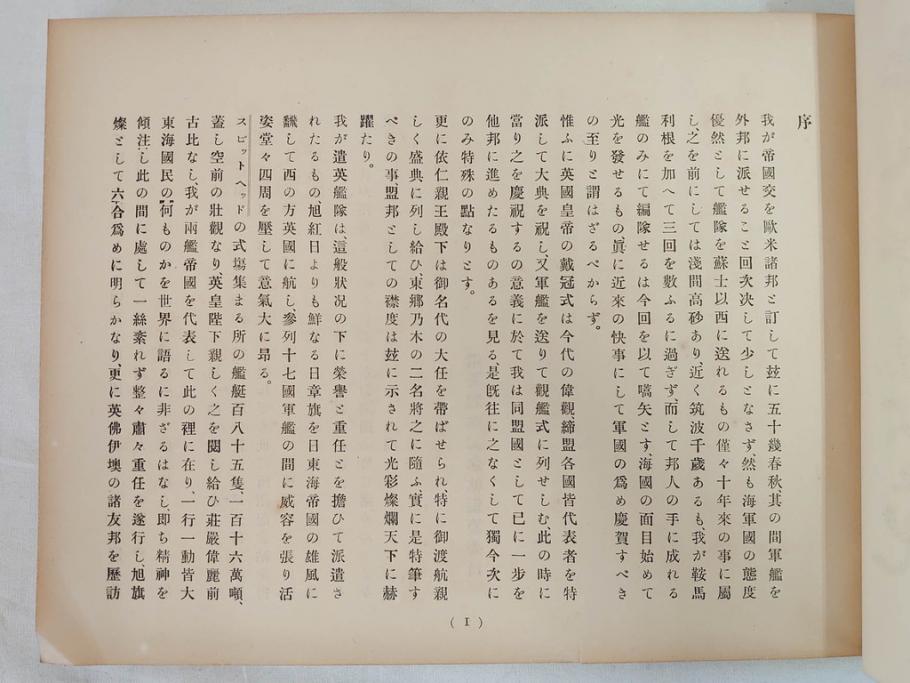 序
我が帝國交を歐米諸邦と訂して玆に五十幾春秋其の間軍艦を
外邦に派せること回次決して少しとなさず、然も海軍國の態度
優然として艦隊を蘇士以西に送れるもの僅々十年來の事に屬
し之を前にしては淺間高砂あり、近く筑波千歳あるも、我が鞍馬
利根を加へて三回を數ふるに過ぎず、而して邦人の手に成れる
艦のみにて編隊せるは今回を以て嚆矢とす、海國の面目始めて
光を發せるもの、眞に近來の快事にして軍國の爲め慶賀すべき
の至りと謂はざるべからず。
惟ふに英國皇帝の戴冠式は今代の偉觀締盟各國皆代表者を特
派して大典を祝し、又軍艦を送りて觀艦式に列せしむ、此の時に
當り之を慶祝するの意義に於て我は同盟國として已に一步を
他邦に進めたるものあるを見る、是既往に之なくして獨今次に
のみ特殊の點なりとす。
更に依仁親王殿下は御名代の大任を帶ばせられ、特に御渡航親
しく盛典に列し給ひ、東郷乃木の二名將之に隨ふ、實に是特筆す
べきの事、盟邦としての襟度は玆に示されて光彩燦爛天下に赫
躍たり。
我が遣英艦隊は、這般狀況の下に榮譽と重任とを擔ひて派遣さ
れたるもの、旭紅日よりも鮮なる日章旗を日東海帝國の雄風に
飜して西の方英國に航し、參列十七國軍艦の間に威容を張り活
姿堂々四周を壓して意氣大に昂る。
スピットヘッドの式塲集まる所の艦艇百八十五隻、一百十六萬噸、
蓋し空前の壯觀なり、英皇陛下親しく之を閱し給ひ莊嚴偉麗前
古比なし、我が兩艦帝國を代表して此の裡に在り、一行一動皆大
東海國民の【何ものかを世界に語るに非ざるはなし、即ち精神を
傾注し此の間に處して一絲紊れず整々肅々重任を遂行し、旭旗
燦として六合爲めに明らかなり、更に英佛伊墺の諸友邦を歷訪
( 1 )